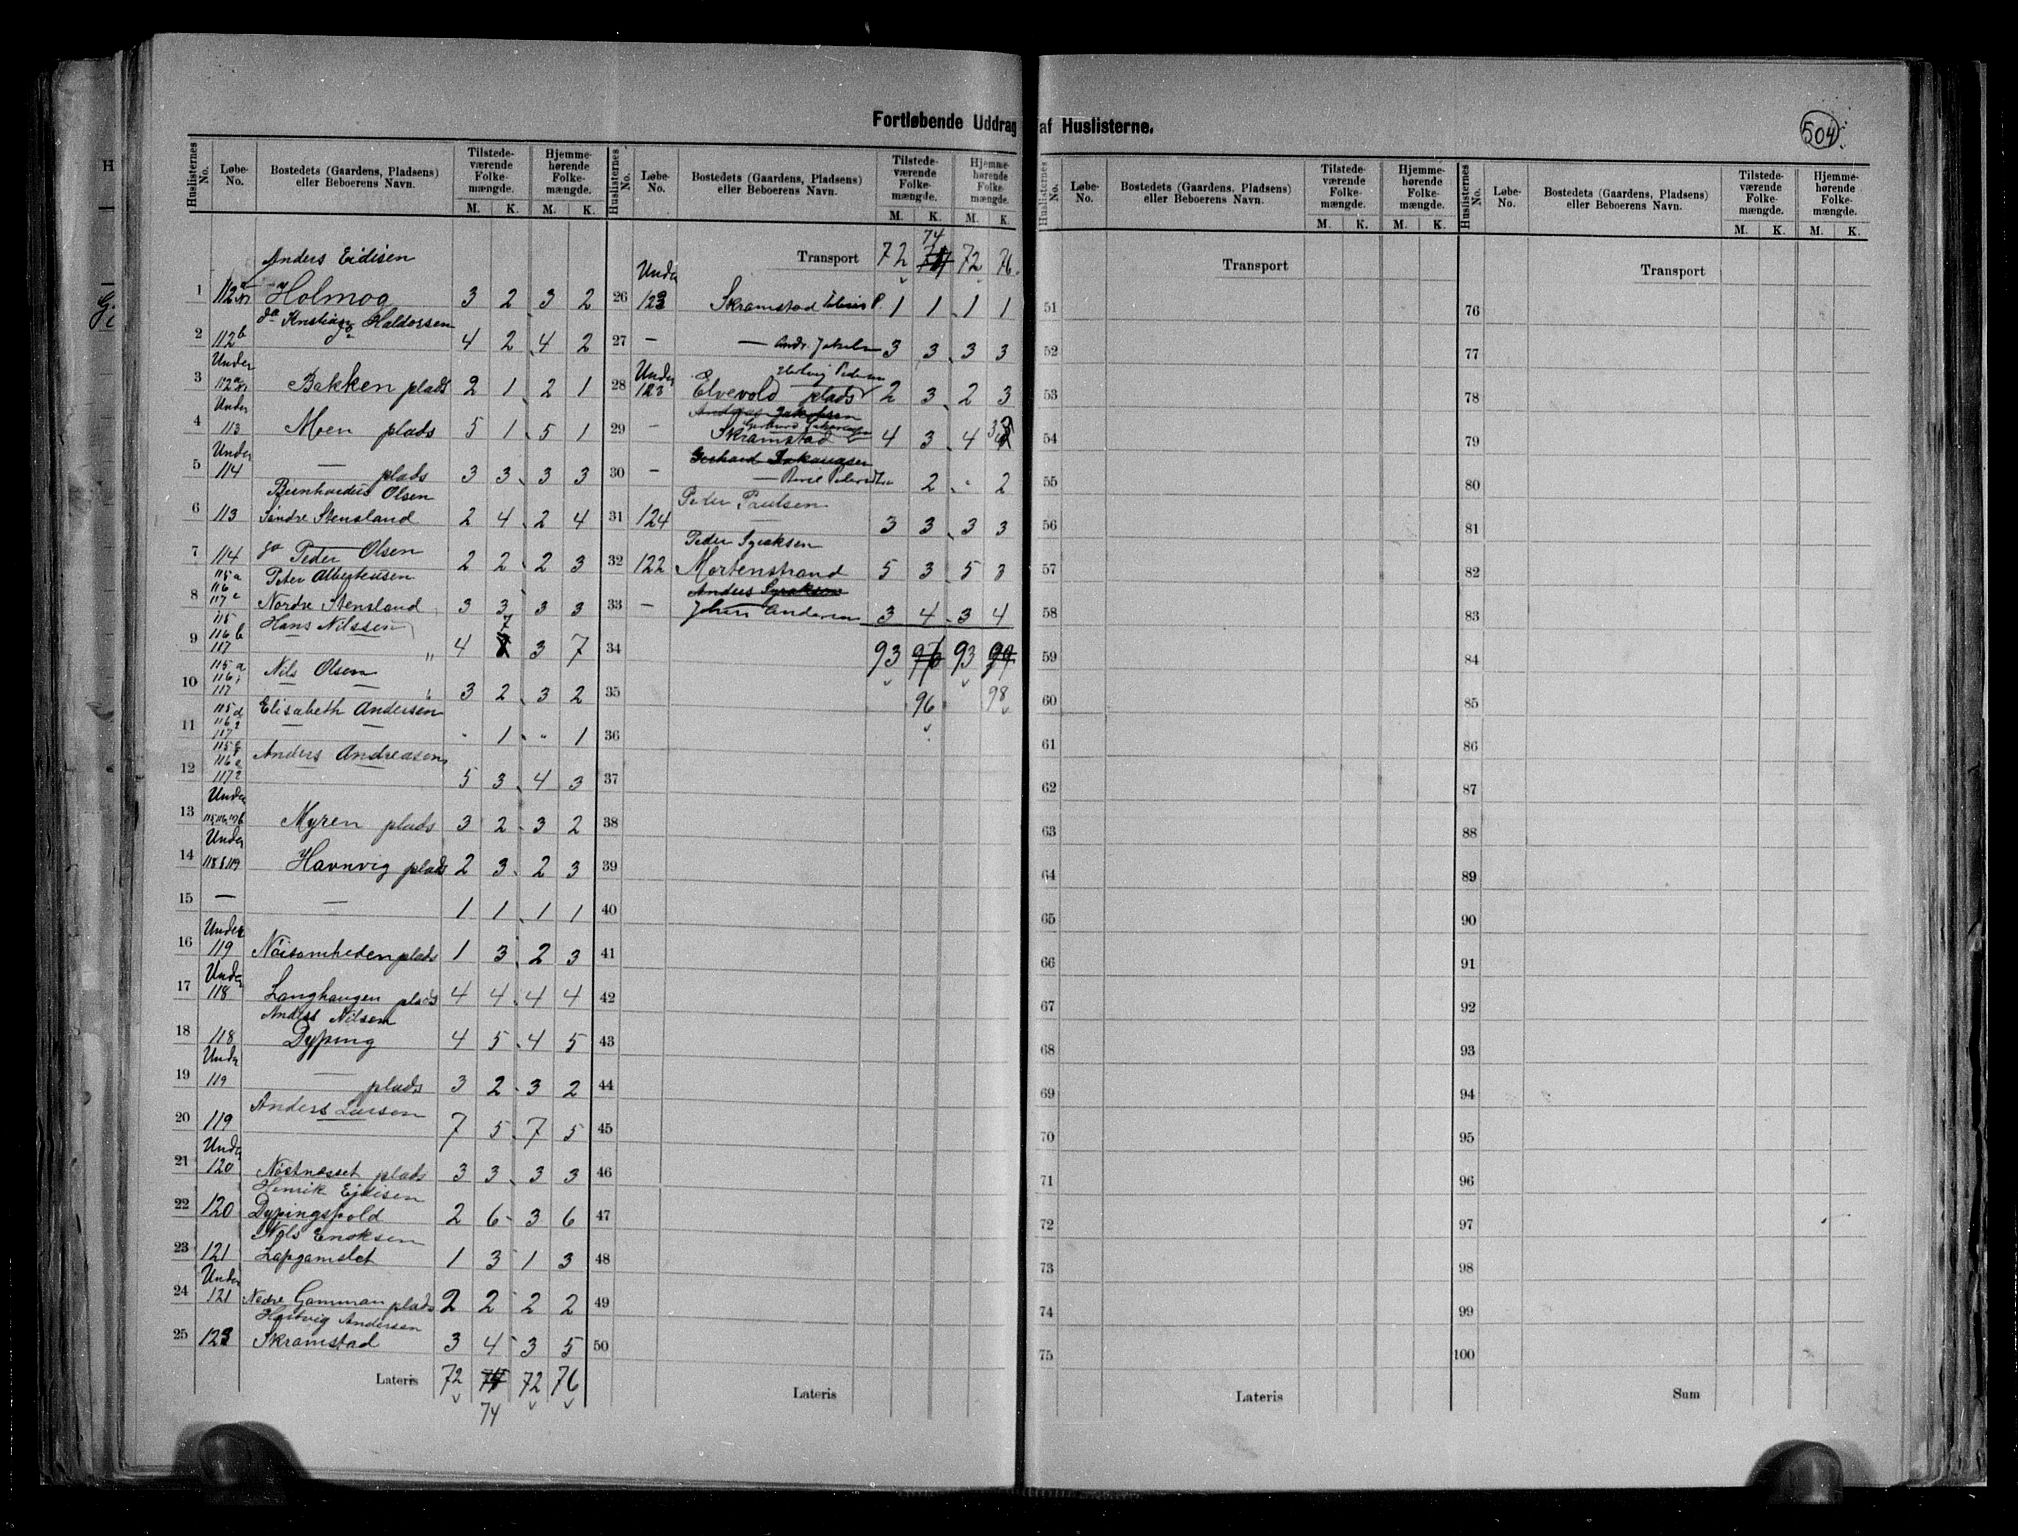 504
Fortløbende Uddrag af Huslisterne.
Huslisternes No. Løbe-No. Bostedets (Gaardens, Pladsens) eller Beboerens Navn. Tilstedeværende Folkemængde. M. K. Hjemmehørende Folkemængde. M. K.
Anders Eidisen
1 Holmog 3 2 3 2
Haldorsen
2 112b 4 2 4 2
Under
3 Bakken plads 2 1 2 1
Under
4 113 Moen plads 5 1 5 1
Under
5 114 — plads 3 3 3 3
Bernhardus Olsen
6 113 Søndre Stensland 2 4 2 4
7 114 Peder Olsen 2 2 2 3
115a
116c
Peter Alberteusen
8 117c Nordre Stensland 3 3 3 3
115 Hans Nilssen
9 116b 117 " 4 7 3 7
115a Nils Olsen
10 116 117 — 3 2 3 2
115d Elisabeth Andersen
11 116 117 — " 1 " 1
Anders Andreasen
12 5 3 4 3
Under
13 Myren plads 3 2 3 2
Under
14 118 & 119 Havnvig plads 2 3 2 3
15 — — 1 1 1 1
Under
16 119 Nøisomheden plads 1 3 2 3
Under
17 118 Langhaugen plads 4 4 4 4
Anders Nilsen
18 118 Dyping 4 5 4 5
Under
19 119 — plads 3 2 3 2
Anders Larsen
20 119 — 7 5 7 5
Under
21 120 Nøstnesset plads 3 3 3 3
Henrik Eidisen
22 120 Dypingspold 2 6 3 6
Nils Enoksen
23 121 Lapgamslet 1 3 1 3
Under
24 121 Nedre Gamman plads 2 2 2 2
Hartvig Andersen
25 123 Skramstad 3 4 3 5
Lateris 72 74 72 76
74
Huslisternes No. Løbe-No. Bostedets (Gaardens, Pladsens) eller Beboerens Navn. Tilstedeværende Folkemængde. M. K. Hjemmehørende Folkemængde. M. K.
74
Transport 72 72 76
Under
26 123 Skramstad P. 1 1 1 1
27 — — Andr. 3 3 3 3
Under Pedersen
28 123 Elvevold plads 2 3 2 3
Andreas Jakobsen
29 — Skramstad 4 3 4 3
Gerhard Zakariasen
30 — — 2 " 2
Peder Paulsen
31 124 — 3 3 3 3
Peder Syraksen
32 122 Mortenstrand 5 3 5 3
Anders Syraksen
33 — Johan Andersen 3 4 3 4
34 93 93
35 96 98
36
37
38
39
40
41
42
43
44
45
46
47
48
49
50
Lateris
Huslisternes No. Løbe-No. Bostedets (Gaardens, Pladsens) eller Beboerens Navn. Tilstedeværende Folkemængde. M. K. Hjemmehørende Folkemængde. M. K.
Transport
51
52
53
54
55
56
57
58
59
60
61
62
63
64
65
66
67
68
69
70
71
72
73
74
75
Lateris
Huslisternes No. Løbe-No. Bostedets (Gaardens, Pladsens) eller Beboerens Navn. Tilstedeværende Folkemængde. M. K. Hjemmehørende Folkemængde. M. K.
Transport
76
77
78
79
80
81
82
83
84
85
86
87
88
89
90
91
92
93
94
95
96
97
98
99
100
Sum